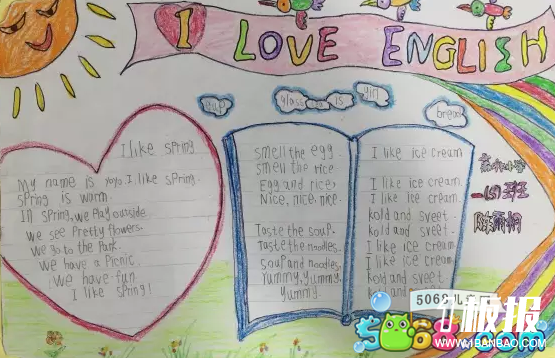 I LOVE ENGLISH
cup
glass
is
girl
bread
I like spring
My name is yoyo. I like spring.
spring is warm.
In spring, we play outside.
we see Pretty flowers.
we go to the Park.
we have a Picnic.
we have fun.
I like spring!
smell the egg.
smell the rice.
Egg and rice,
Nice, nice, nice.
Taste the soup.
Taste the noodles.
soup and noodles
Yummy, yummy,
Yummy.
I like ice cream
I like ice cream,
I like ice cream.
kold and sveet.
kold and sveet.
I like ice cream
I like ice cream
kold and sveet
kold and
一
班
陈雨桐
5068儿
板报
WWW.1BANBAO.COM